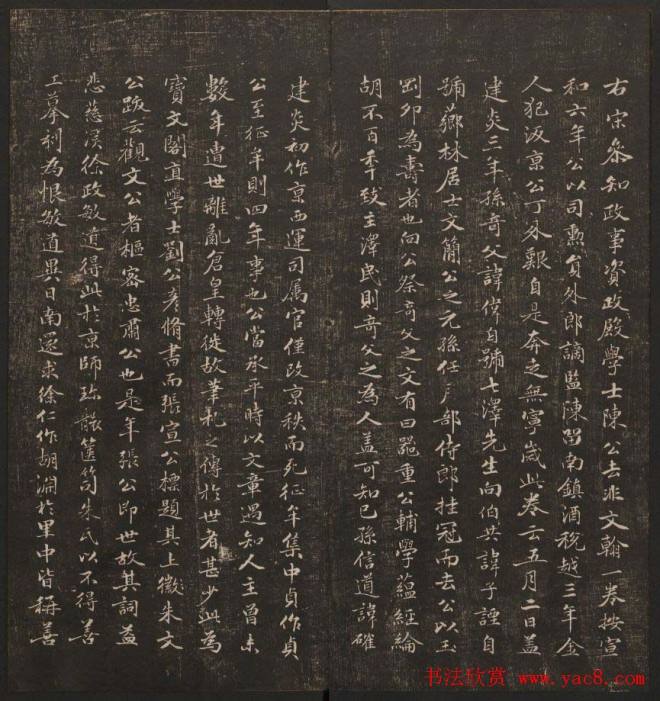 右宋叅知政事資政殿學士陳公去非文翰一卷按宣
和六年公以司勳貟外郎謫監陳畱南鎮酒稅越三年金
人犯汳京公丁外艱自是奔走無寧歲此卷云五月二日葢
建炎三年孫竒父諱偉自號七澤先生向伯共諱子諲自
號薌林居士文簡公之元孫任戶部侍郎挂冠而去公以玉
剛卯為壽者也向公祭竒父之文有曰器重公輔學蘊經綸
胡不百年致主澤民則竒父之為人葢可知已孫信道諱確
建炎初作京西運司属官僅改京秩而死征牟集中貞作貞
公至征牟則四年事也公當承平時以文章遇知人主曾未
數年遭世離亂倉皇轉徙故筆札之傳於世者甚少此為
寶文閣直學士劉公彥脩書而張宣公標題其上徽朱文
公跋云觀文公者樞密忠肅公也是年張公即世故其詞益
悲慈溪徐政敏道得此於京師珎藏篋笥朱氏以不得善
工摹刊為恨敏道異日南還求徐仁作胡淵於里中皆稱善
书法欣赏 www.yac8.com